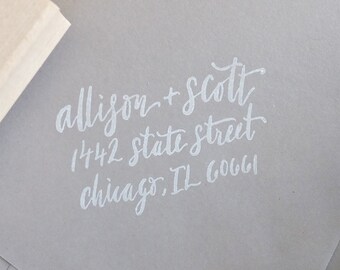 allison + scott
1442 state street
chicago, IL 60661